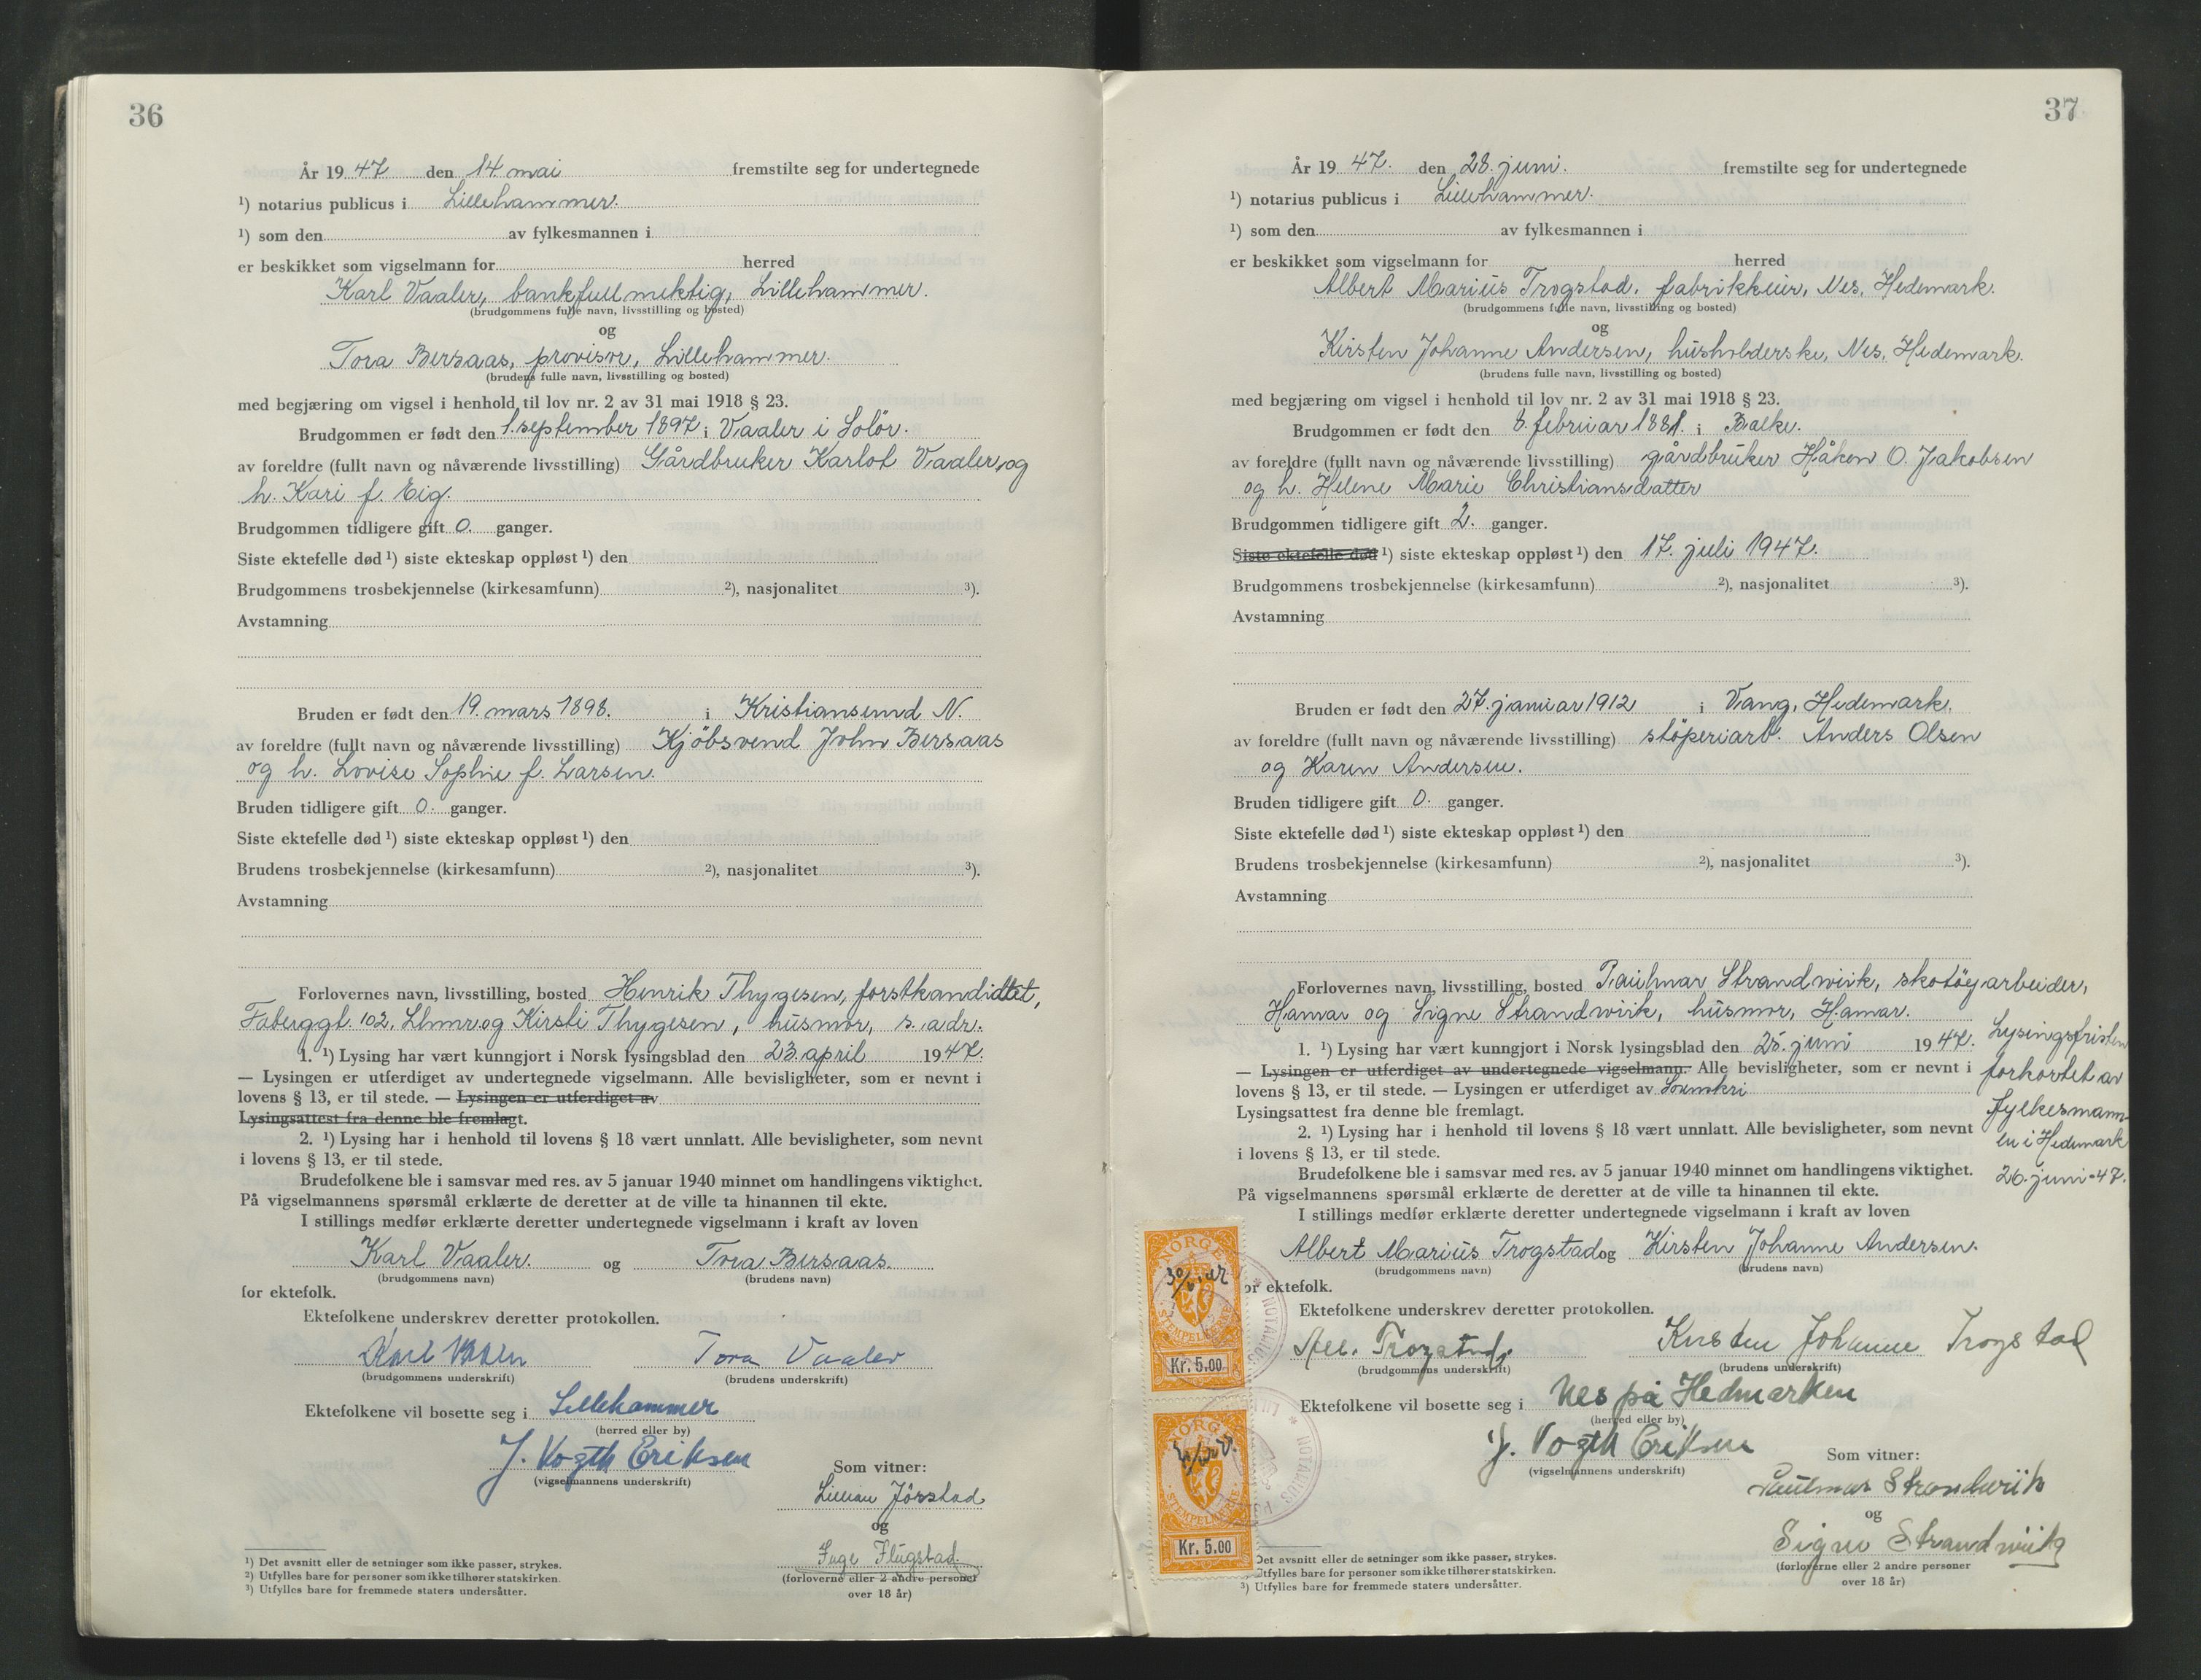 36
År 1947 den 14. mai fremstilte seg for undertegnede
¹) notarius publicus i Lillehammer.
¹) som den av fylkesmannen i
er beskikket som vigselmann for herred
Karl Vaaler, bankfullmektig, Lillehammer.
(brudgommens fulle navn, livsstilling og bosted)
og
Tora Bersaas, provisor, Lillehammer.
(brudens fulle navn, livsstilling og bosted)
med begjæring om vigsel i henhold til lov nr. 2 av 31 mai 1918 § 23.
Brudgommen er født den 1. september 1897 i Vaaler i Solör.
av foreldre (fullt navn og nåværende livsstilling) Gårdbruker Karlot Vaaler og
h. Kari f. Eig.
Brudgommen tidligere gift 0. ganger.
Siste ektefelle død ¹) siste ekteskap oppløst ¹) den
Brudgommens trosbekjennelse (kirkesamfunn) ²), nasjonalitet ³).
Avstamning
Bruden er født den 19. mars 1898. i Kristiansund N.
av foreldre (fullt navn og nåværende livsstilling) Kjöbsvend John Bersaas
og h. Lovise Sophie f. Larsen.
Bruden tidligere gift 0. ganger.
Siste ektefelle død ¹) siste ekteskap oppløst ¹) den
Brudens trosbekjennelse (kirkesamfunn) ²), nasjonalitet ³).
Avstamning
Forlovernes navn, livsstilling, bosted Henrik Thygesen, forstkandidtet,
Faberggt. 102, Lhmr. og Kirsti Thygesen, husmor, s. adr.
1. ¹) Lysing har vært kunngjort i Norsk lysingsblad den 23. april 1947.
— Lysingen er utferdiget av undertegnede vigselmann. Alle bevisligheter, som er nevnt i
lovens § 13, er til stede. — Lysingen er utferdiget av
Lysingsattest fra denne ble fremlagt.
2. ¹) Lysing har i henhold til lovens § 18 vært unnlatt. Alle bevisligheter, som nevnt
i lovens § 13, er til stede.
Brudefolkene ble i samsvar med res. av 5 januar 1940 minnet om handlingens viktighet.
På vigselmannens spørsmål erklærte de deretter at de ville ta hinannen til ekte.
I stillings medfør erklærte deretter undertegnede vigselmann i kraft av loven
Karl Vaaler. og Tora Bersaas.
(brudgommens navn) (brudens navn)
for ektefolk.
Ektefolkene underskrev deretter protokollen.
Karl Vaaler Tora Vaaler
(brudgommens underskrift) (brudens underskrift)
Ektefolkene vil bosette seg i Lillehammer
(herred eller by)
J. Vogth Eriksen
(vigselmannens underskrift)
Som vitner:
Lillian Jörstad
og
Inge Flugstad.
(forloverne eller 2 andre personer
over 18 år)
¹) Det avsnitt eller de setninger som ikke passer, strykes.
²) Utfylles bare for personer som ikke tilhører statskirken.
³) Utfylles bare for fremmede staters undersåtter.
37
År 1947. den 28. juni. fremstilte seg for undertegnede
¹) notarius publicus i Lillehammer.
¹) som den av fylkesmannen i
er beskikket som vigselmann for herred
Albert Marius Trogstad, fabrikkeier, Nes, Hedemark.
(brudgommens fulle navn, livsstilling og bosted)
og
Kirsten Johanne Andersen, husholderske, Nes, Hedemark.
(brudens fulle navn, livsstilling og bosted)
med begjæring om vigsel i henhold til lov nr. 2 av 31 mai 1918 § 23.
Brudgommen er født den 8. februar 1881. i Balke.
av foreldre (fullt navn og nåværende livsstilling) gårdbruker Håken O. Jakobsen
og h. Helene Marie Christiansdatter
Brudgommen tidligere gift 2. ganger.
Siste ektefelle død ¹) siste ekteskap oppløst ¹) den 17. juli 1947.
Brudgommens trosbekjennelse (kirkesamfunn) ²), nasjonalitet ³).
Avstamning
Bruden er født den 27. januar 1912 i Vang, Hedemark.
av foreldre (fullt navn og nåværende livsstilling) støperiarb. Anders Olsen
og Karen Andersen.
Bruden tidligere gift 0. ganger.
Siste ektefelle død ¹) siste ekteskap oppløst ¹) den
Brudens trosbekjennelse (kirkesamfunn) ²), nasjonalitet ³).
Avstamning
Forlovernes navn, livsstilling, bosted Paulmar Strandwiik, skotöyarbeider,
Hamar og Signe Strandwiik, husmor, Hamar.
1. ¹) Lysing har vært kunngjort i Norsk lysingsblad den 25. juni 1947.
— Lysingen er utferdiget av undertegnede vigselmann. Alle bevisligheter, som er nevnt i
lovens § 13, er til stede. — Lysingen er utferdiget av
Lysingsattest fra denne ble fremlagt.
2. ¹) Lysing har i henhold til lovens § 18 vært unnlatt. Alle bevisligheter, som nevnt
i lovens § 13, er til stede.
Brudefolkene ble i samsvar med res. av 5 januar 1940 minnet om handlingens viktighet.
På vigselmannens spørsmål erklærte de deretter at de ville ta hinannen til ekte.
I stillings medfør erklærte deretter undertegnede vigselmann i kraft av loven
Lysingsfristen
forkortet av
fylkesmann-
en i Hedemark
26. juni-47.
Albert Marius Trogstad og Kirsten Johanne Andersen.
(brudgommens navn) (brudens navn)
or ektefolk.
Ektefolkene underskrev deretter protokollen.
Alb. Trogstad. Kirsten Johanne Trogstad
(brudgommens underskrift) (brudens underskrift)
Ektefolkene vil bosette seg i Nes på Hedmarken
(herred eller by)
J. Vogth Eriksen
(vigselmannens underskrift)
Som vitner:
Paulmar Strandwiik
og
Signe Strandwiik
(forloverne eller 2 andre personer
over 18 år)
Det avsnitt eller de setninger som ikke passer, strykes.
Utfylles bare for personer som ikke tilhører statskirken.
³) Utfylles bare for fremmede staters undersåtter.
NORGE
STEMPELMERKE
Kr. 5.00
NORGE
STEMPELMERKE
Kr. 5.00
NOTARIUS
NOTARIUS